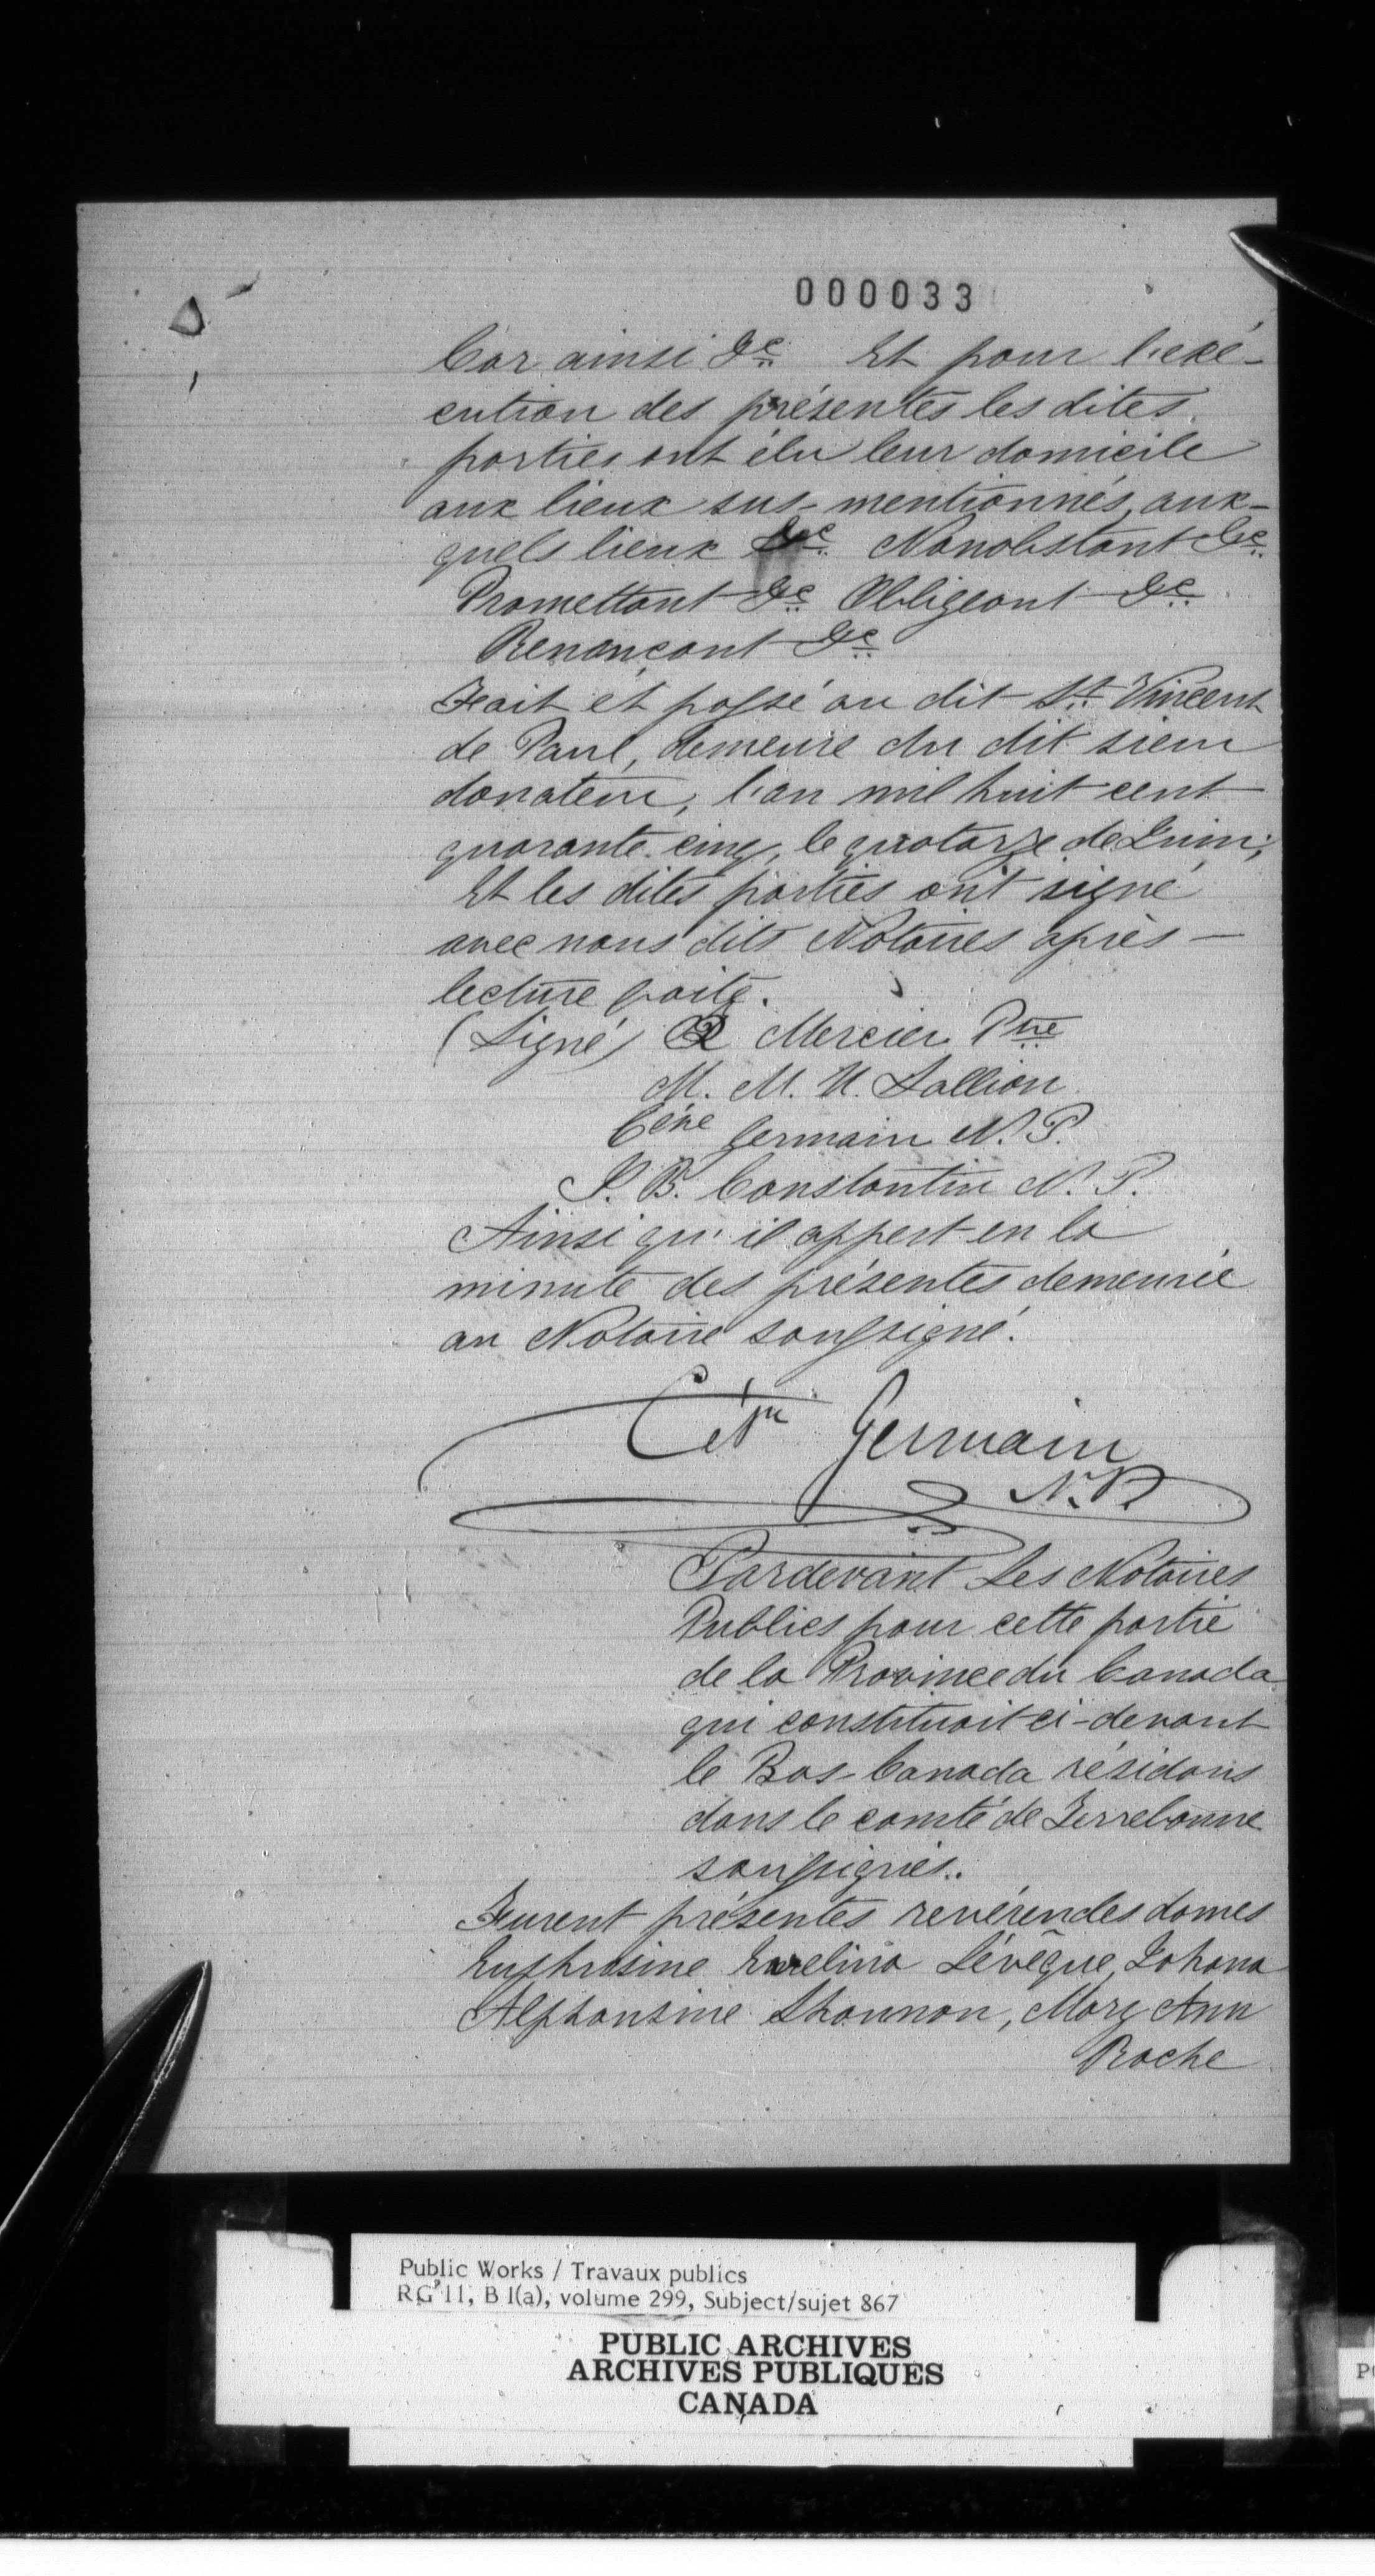 000033
Car ainsi &c. Et pour l'exé-
cution des présentes les dites
parties ont élu leur domicile
aux lieux sus-mentionnés, aux-
quels lieux &c. Nonobstant &c.
Promettant &c. Obligeant &c.
Renonçant &c.
Fait et passé au dit St. Vincent
de Paul, demeure du dit sieur
donateur, l'an mil huit cent
quarante-cinq, le quatorze de Juin;
Et les dites parties ont signé
avec nous dits Notaires après—
lecture faite.
(Signé) Mercier Ptre
M. M. U. Sallion
Césre Germain N. P.
J. B. Constantin N. P.
Ainsi qu'il appert en la
minute des présentes demeurée
au Notaire soussigné.
Germain
N. P.
Pardevant Les Notaires
Publics pour cette partie
de la Province du Canada
qui constituait ci-devant
le Bas-Canada résidans
dans le comté de Terrebonne
soussignés.
Furent présentes revérendes dames
Euphrosine Emelina Lévêque, Johana
Alphonsine Shannon, Mary Ann
Roche
Public Works / Travaux publics
RG 11, B 1(a), volume 299, Subject/sujet 867
PUBLIC ARCHIVES
ARCHIVES PUBLIQUES
CANADA